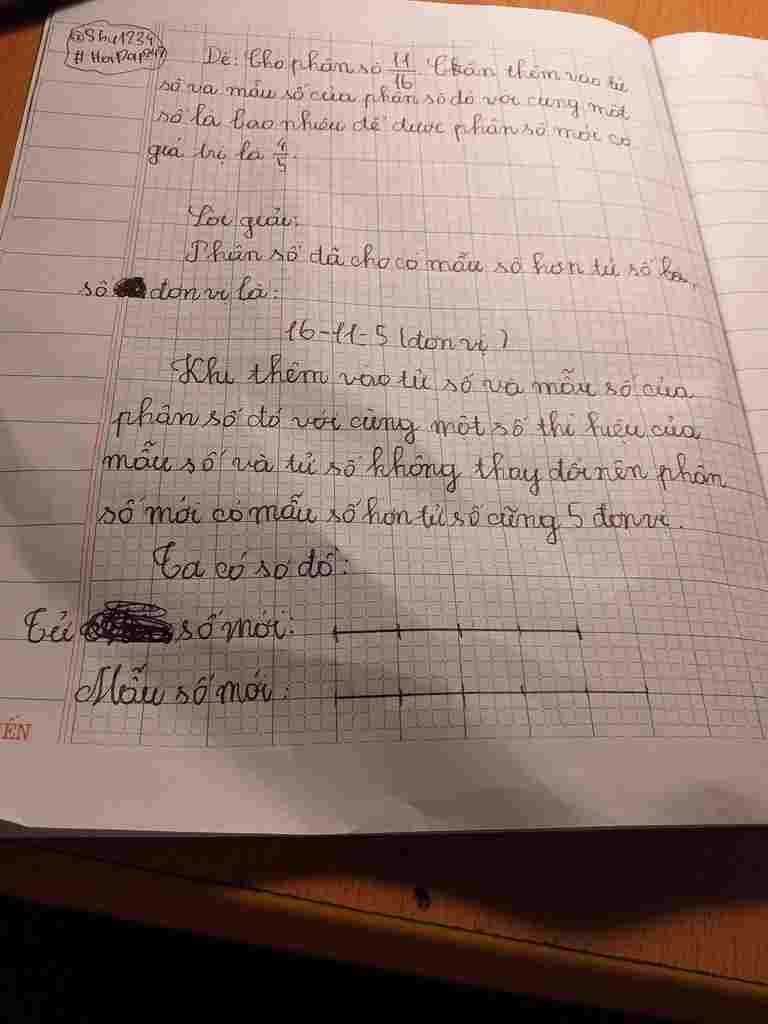 @Shu1234
# HoiDap247
Đề: Cho phân số 11/16. Cần thêm vào tử
số và mẫu số của phân số đó với cùng một
số là bao nhiêu để được phân số mới có
giá trị là 4/5.
Lời giải:
Phân số đã cho có mẫu số hơn tử số
số đơn vị là:
16-11=5 (đơn vị)
Khi thêm vào tử số và mẫu số của
phân số đó với cùng một số thì hiệu của
mẫu số và tử số không thay đổi nên phân
số mới có mẫu số hơn tử số cũng 5 đơn vị.
Ta có sơ đồ:
Tử số mới:
Mẫu số mới:
ẾN